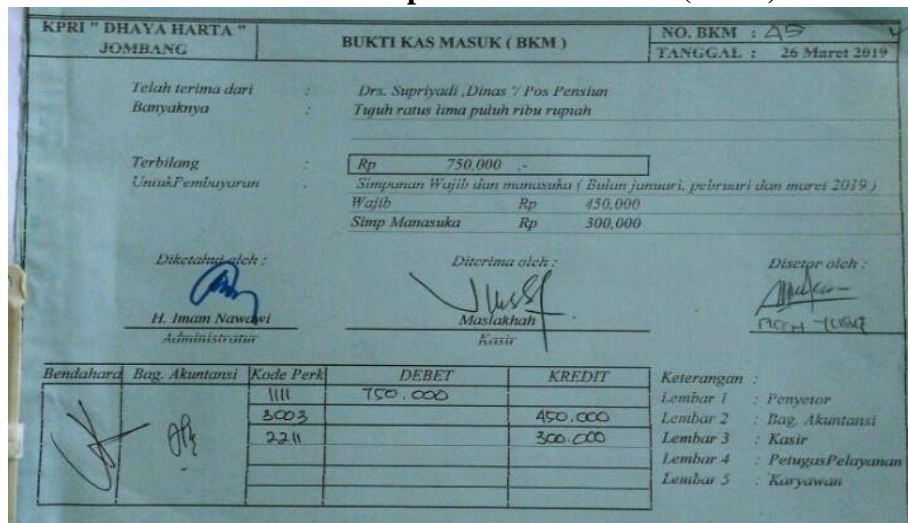 KPRI " DHAYA HARTA "
JOMBANG
BUKTI KAS MASUK ( BKM )
NO. BKM : 45
TANGGAL : 26 Maret 2019
Telah terima dari : Drs. Supriyadi ,Dinas '/ Pos Pensiun
Banyaknya : Tujuh ratus lima puluh ribu rupiah
Terbilang : Rp 750,000 ,-
UntukPembayaran : Simpanan Wajib dan manasuka ( Bulan januari, pebruari dan maret 2019 )
Wajib Rp 450,000
Simp Manasuka Rp 300,000
Diketahui oleh : Diterima oleh : Disetor oleh :
H. Imam Nawawi Maslakhah
Administratur Kasir
Bendahara Bag. Akuntansi Kode Perk DEBET KREDIT
1111 750.000
3003 450.000
2211 300.000
Keterangan :
Lembar 1 : Penyetor
Lembar 2 : Bag. Akuntansi
Lembar 3 : Kasir
Lembar 4 : PetugasPelayanan
Lembar 5 : Karyawan